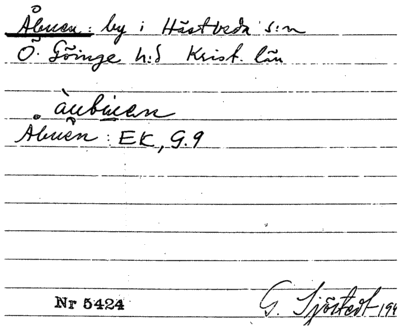 Åbuen: by i Hästveda s:n
Ö. Göinge h:d Krist. län
àubiuen
Åbuen: EK, G.9
Nr 5424
G. Sjöstedt 194